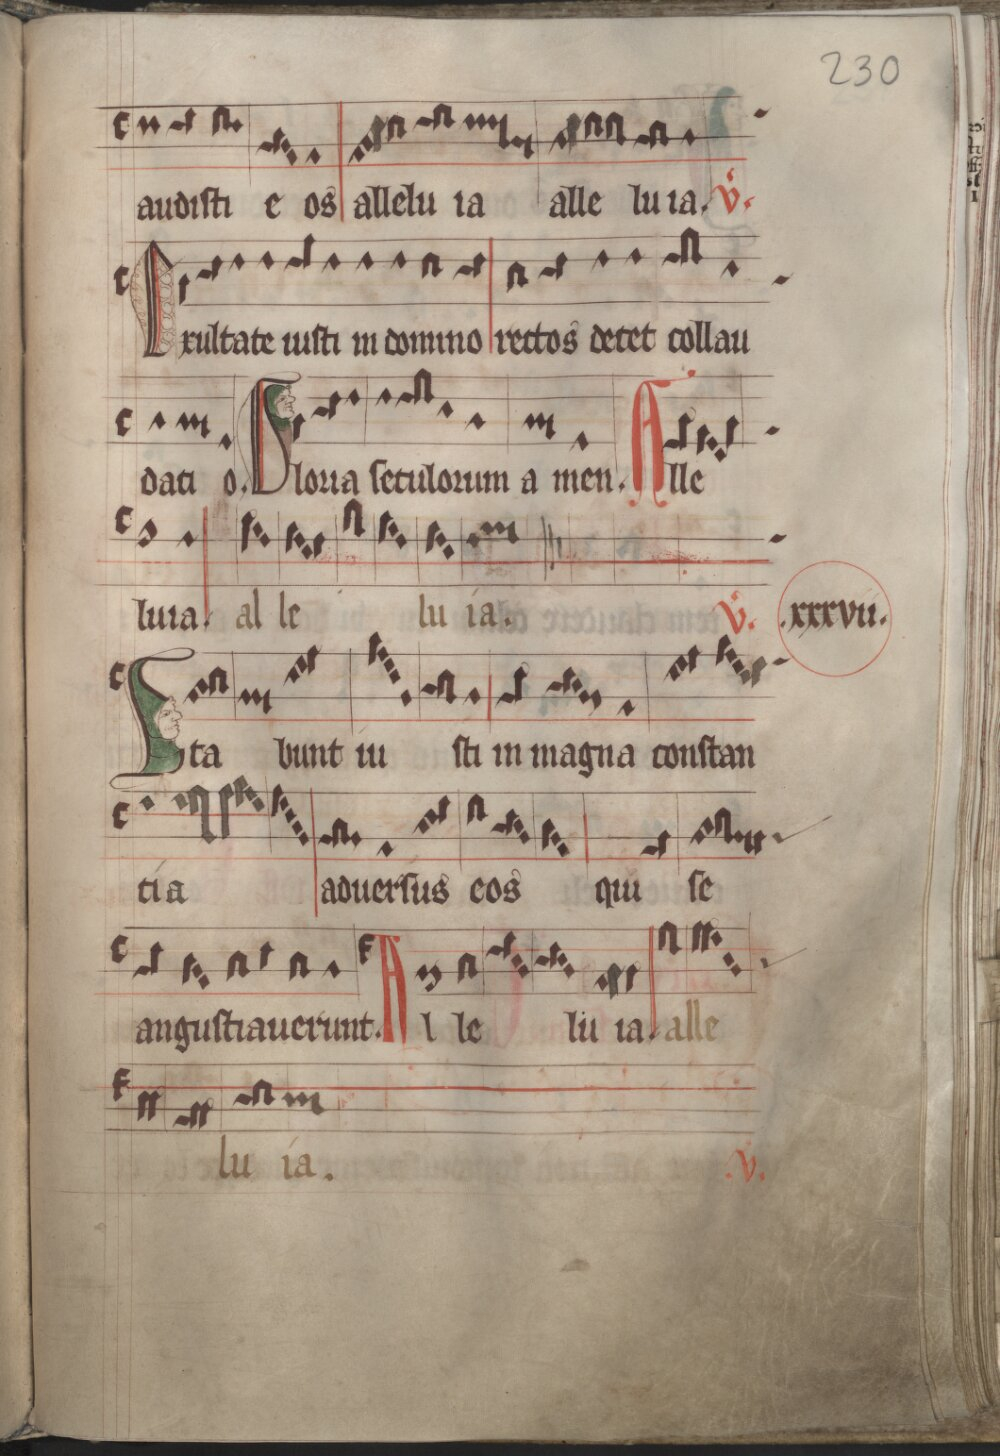 230
audisti e os allelu ia alle lu ia. v.
Exultate iusti in domino rectos decet collau
dati o. Gloria seculorum a men. Alle
luia. al le lu ia. v. .xxxvii.
Sta bunt iu sti in magna constan
tia aduersus eos qui se
angustiauerunt. Al le lu ia. alle
lu ia. .v.